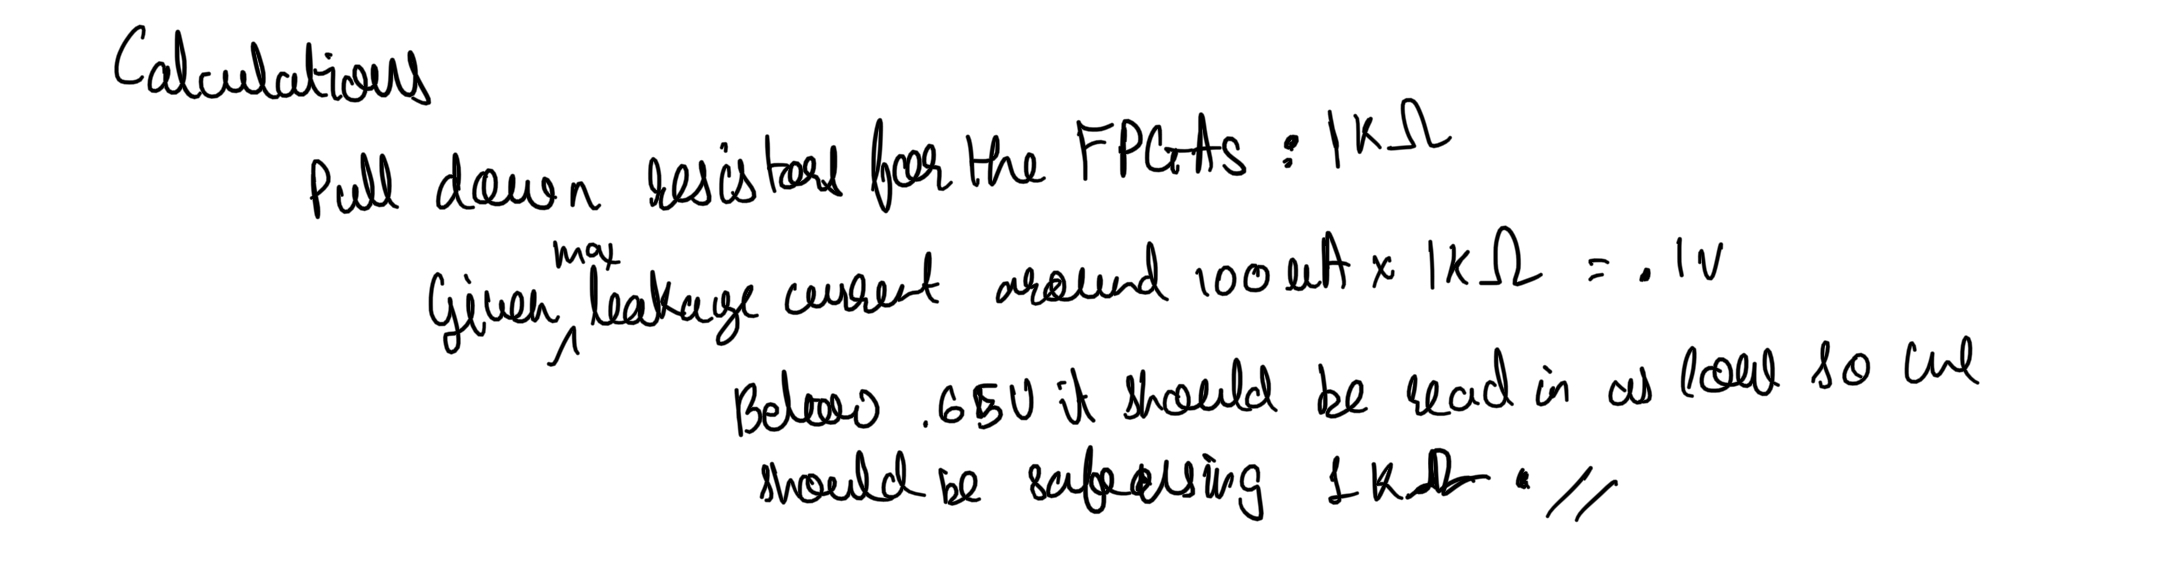 Calculations
Pull down resistors for the FPGAs : 1KΩ
Given max leakage current around 100uA x 1KΩ = .1V
Below .65V it should be read in as low so we
should be safe using 1KΩ. //